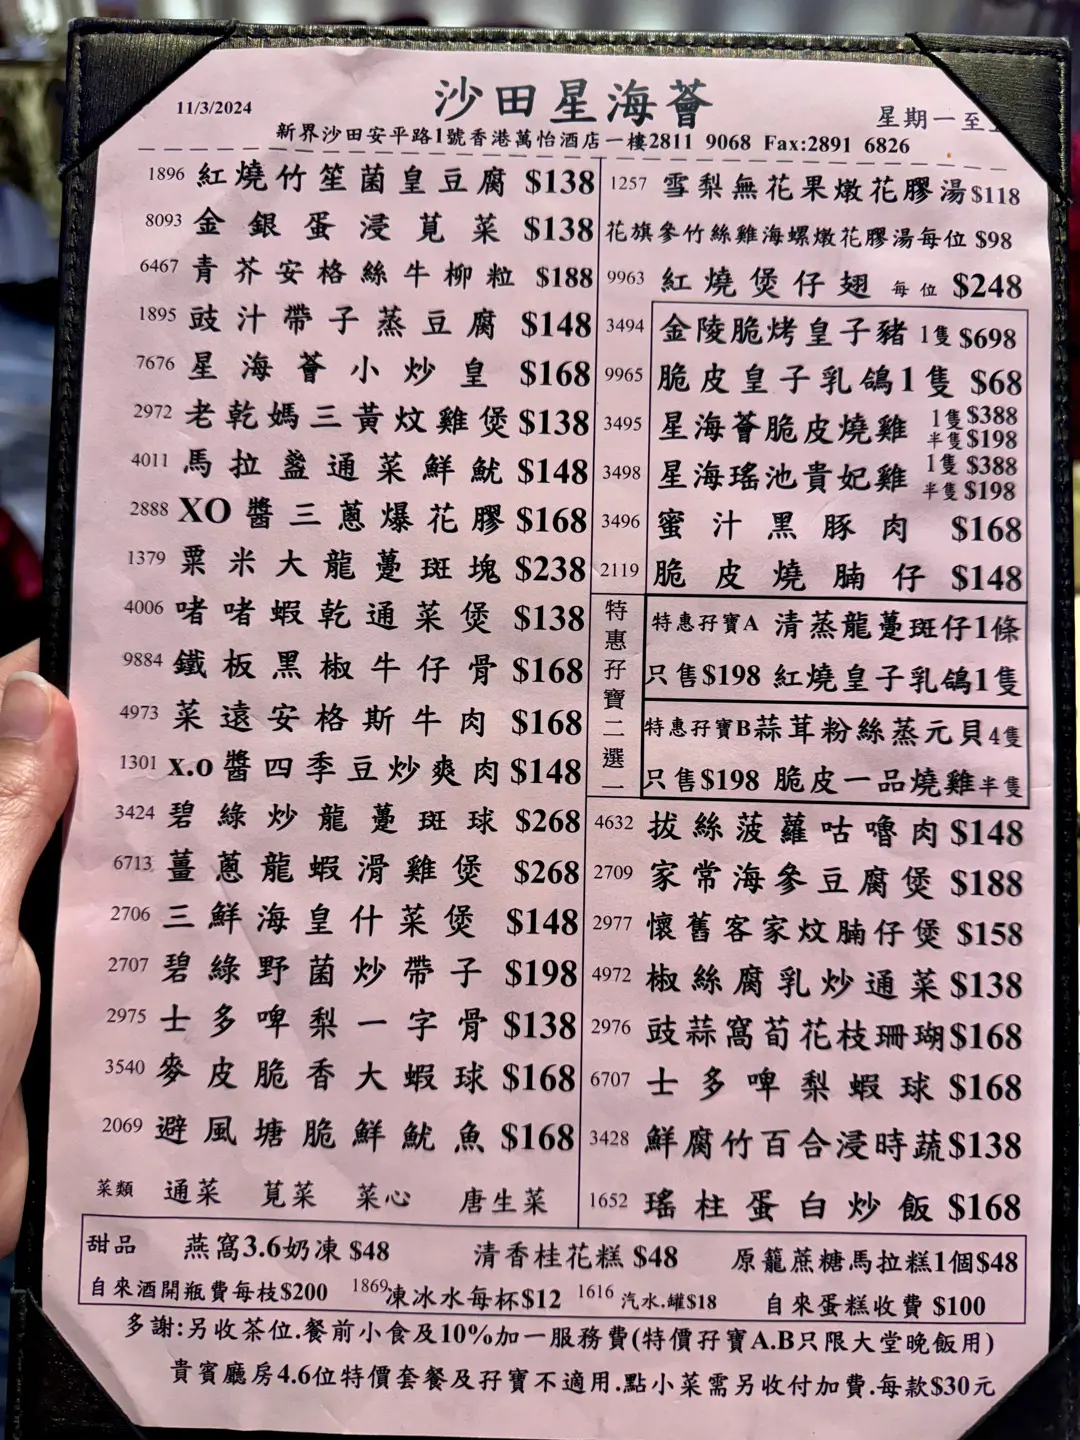 11/3/2024
沙田星海薈
星期一至
新界沙田安平路1號香港萬怡酒店一樓2811 9068 Fax:2891 6826
1896 紅燒竹笙菌皇豆腐 $138
8093 金銀蛋浸莧菜 $138
6467 青芥安格絲牛柳粒 $188
1895 豉汁帶子蒸豆腐 $148
7676 星海薈小炒皇 $168
2972 老乾媽三黃炆雞煲 $138
4011 馬拉盞通菜鮮魷 $148
2888 XO醬三蔥爆花膠 $168
1379 粟米大龍躉斑塊 $238
4006 啫啫蝦乾通菜煲 $138
9884 鐵板黑椒牛仔骨 $168
4973 菜遠安格斯牛肉 $168
1301 x.o醬四季豆炒爽肉 $148
3424 碧綠炒龍躉斑球 $268
6713 薑蔥龍蝦滑雞煲 $268
2706 三鮮海皇什菜煲 $148
2707 碧綠野菌炒帶子 $198
2975 士多啤梨一字骨 $138
3540 麥皮脆香大蝦球 $168
2069 避風塘脆鮮魷魚 $168
菜類 通菜 莧菜 菜心 唐生菜
1257 雪梨無花果燉花膠湯 $118
花旗參竹絲雞海螺燉花膠湯每位 $98
9963 紅燒煲仔翅 每位 $248
3494 金陵脆烤皇子豬 1隻 $698
9965 脆皮皇子乳鴿1隻 $68
3495 星海薈脆皮燒雞 1隻 $388
半隻 $198
3498 星海瑤池貴妃雞 1隻 $388
半隻 $198
3496 蜜汁黑豚肉 $168
2119 脆皮燒腩仔 $148
特惠孖寶二選一
特惠孖寶A 清蒸龍躉斑仔1條
只售$198 紅燒皇子乳鴿1隻
特惠孖寶B蒜茸粉絲蒸元貝4隻
只售$198 脆皮一品燒雞半隻
4632 拔絲菠蘿咕嚕肉 $148
2709 家常海參豆腐煲 $188
2977 懷舊客家炆腩仔煲 $158
4972 椒絲腐乳炒通菜 $138
2976 豉蒜窩荀花枝珊瑚 $168
6707 士多啤梨蝦球 $168
3428 鮮腐竹百合浸時蔬 $138
1652 瑤柱蛋白炒飯 $168
甜品 燕窩3.6奶凍 $48 清香桂花糕 $48 原籠蔗糖馬拉糕1個$48
自來酒開瓶費每枝$200 1869凍冰水每杯$12 1616 汽水.罐$18 自來蛋糕收費 $100
多謝:另收茶位.餐前小食及10%加一服務費(特價孖寶A.B只限大堂晚飯用)
貴賓廳房4.6位特價套餐及孖寶不適用.點小菜需另收付加費.每款$30元